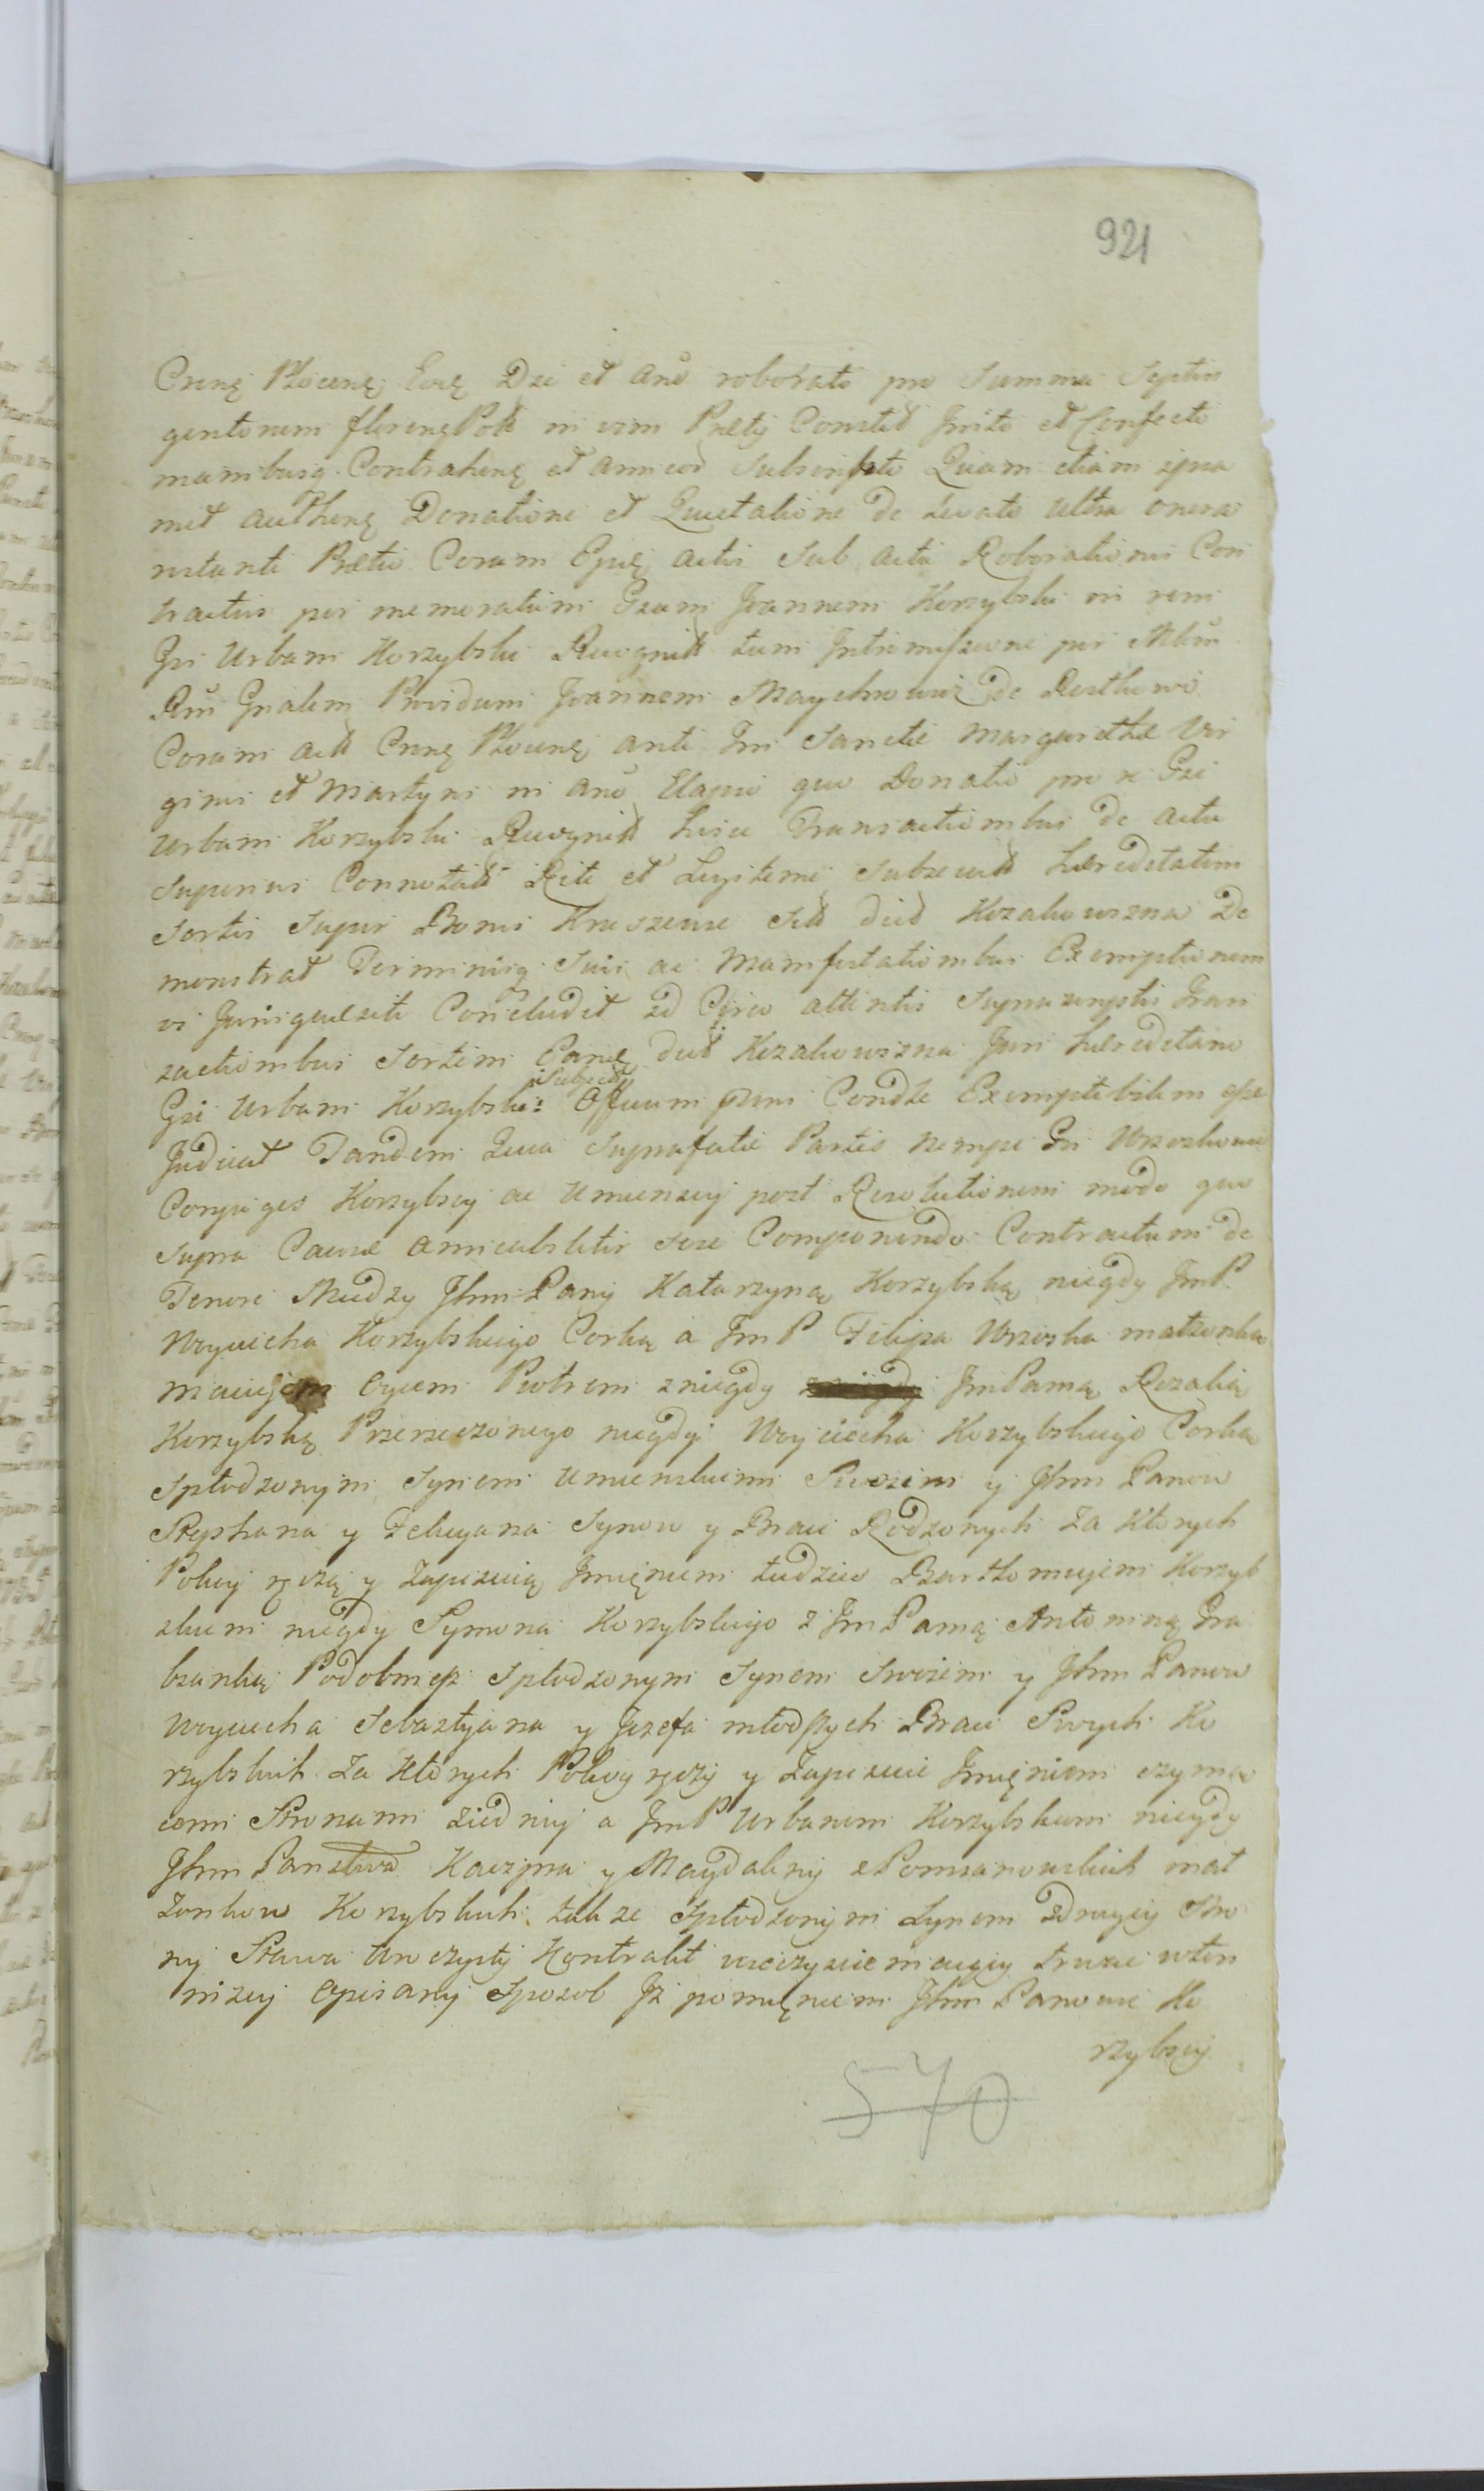 921
Crenę Płocenę Eoię Die et Ano roborato pro Summa Septin
gentorum florenęPoll in vim Prætij Constit Inito et Confecto
manibusq. Contrahenę et amicor Subscripto Quam etiam ipsa
met authenę Donatione et Quietatione de levato ultra onera
restanti Prætio Coram Ejusę actis Sub acta Roborationis Con
tractus per memoratum Gsum Joannem Korzybski in rem
Gsi Urbani Korzybski Recognit tum Intromissione per Mtrm
Rm Gnalem Providum Joannem Maychrowicz de Restkowo
Coram act Crenę Płocenę ante Fm Sanctæ Margarethæ Vir
ginis et Martyris in Ano Elapso quo Donatio pro re Gsi
Urbani Korzybski Recognit hisce Transactionibus de actu
Superius Connotatt Rite et Legitime Subsecutt hæreditatem
Sortis Super Bonis Kruszewie Sitt dict Kozakowszna De
monstrat Terminisq. Suis ac Manifestationibus Exemptionem
vi Jurisquæsiti Concludit id Circo attentis Suprascriptis Tran
sactionibus Sortem Eanę dict Kozakowszna Juri hæreditario
Gsi Urbani Korzybski: Subject
Offuum pns Condte Exemptibilem esse
Judicat Tandem Quia Suprafatæ Partes nempe Gsi Wrzoskowie
Conjuges Korzybscy ac Umienscy post Resolutionem modo quo
Supra Causæ amicabiliter sese Componendo Contractum de
Tenore Między Jhm Panią Katarzyną Korzybską niegdy JmP.
Woyciecha Korzybskiego Corką a JmP Filipa Wrzoska małżonka
maiącą oycem Piotrem z niegdy JmPanią Rozalią
Korzybską Przerzeczonego niegdy Woyciecha Korzybskiego Corką
Spłodzonym Synem Umienskiemi Swoiem y Jhm Panow
Stephana y Felicyana Synow y Braci Rodzonych za ktorych
Policy ręczą y zapisuią Imięniem tudziesz Bartłomiejem Korzyb
skiem niegdy Symona Korzybskiego z JmPanią Antoniną Gra
bzanką Podobniesz Spłodzonym Synem Swoiem y Jhm Panow
Woyciecha Sebastyana y Jozefa młodszych Braci Swych Ko
rzybskich za ktorych Policy ręczy y zapisuie Imięniem czynią
cemi Stronami ziedniey a JmP Urbanem Korzybskiem niegdy
Jhm Panstwa Kacypra y Magdaleny z Pomianowskich mał
zonkow Korzybskich, także Spłodzonym Synem zdrugiey Stro
ny Stawa Uroczysty Kontrakt wieczyscie maiący trwac wten
niżey opisany Sposob Jż pomięnieni Jhm Panowie Ko
rzybscy
570